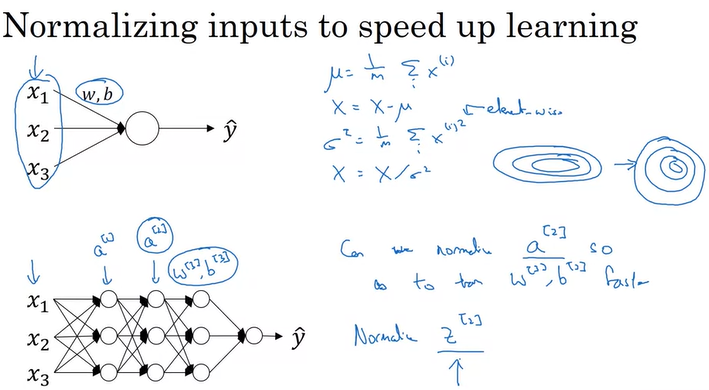 Normalizing inputs to speed up learning
x₁
x₂
x₃
w, b
ŷ
μ = 1/m Σᵢ x⁽ⁱ⁾
X = X - μ
σ² = 1/m Σᵢ x⁽ⁱ⁾² ← element-wise
X = X / σ²
a[1]
a[2]
w[3], b[3]
x₁
x₂
x₃
ŷ
Can we normalize a[2] so
as to train w[3], b[3] faster
Normalize z[2]